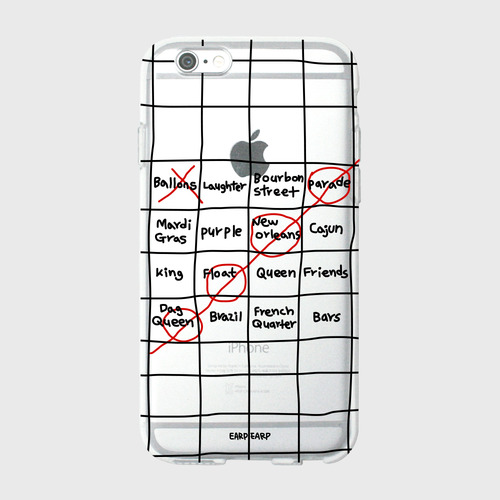 Ballons Laughter Bourbon street parade
Mardi Gras purple New orleans Cajun
king Float Queen Friends
Dag Queen Brazil French Quarter Bars
iPhone
EARP EARP